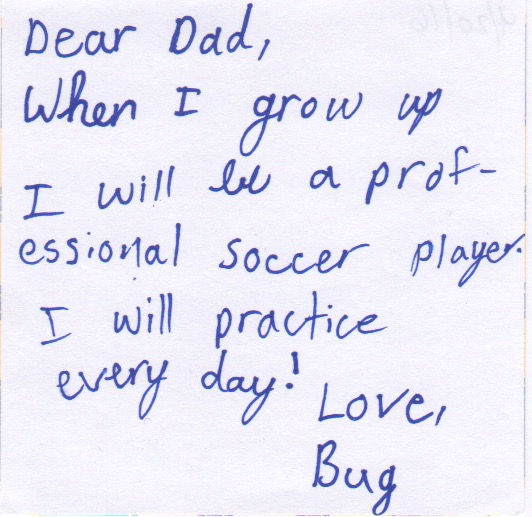 Dear Dad,
When I grow up
I will be a prof-
essional soccer player.
I will practice
every day!
Love,
Bug